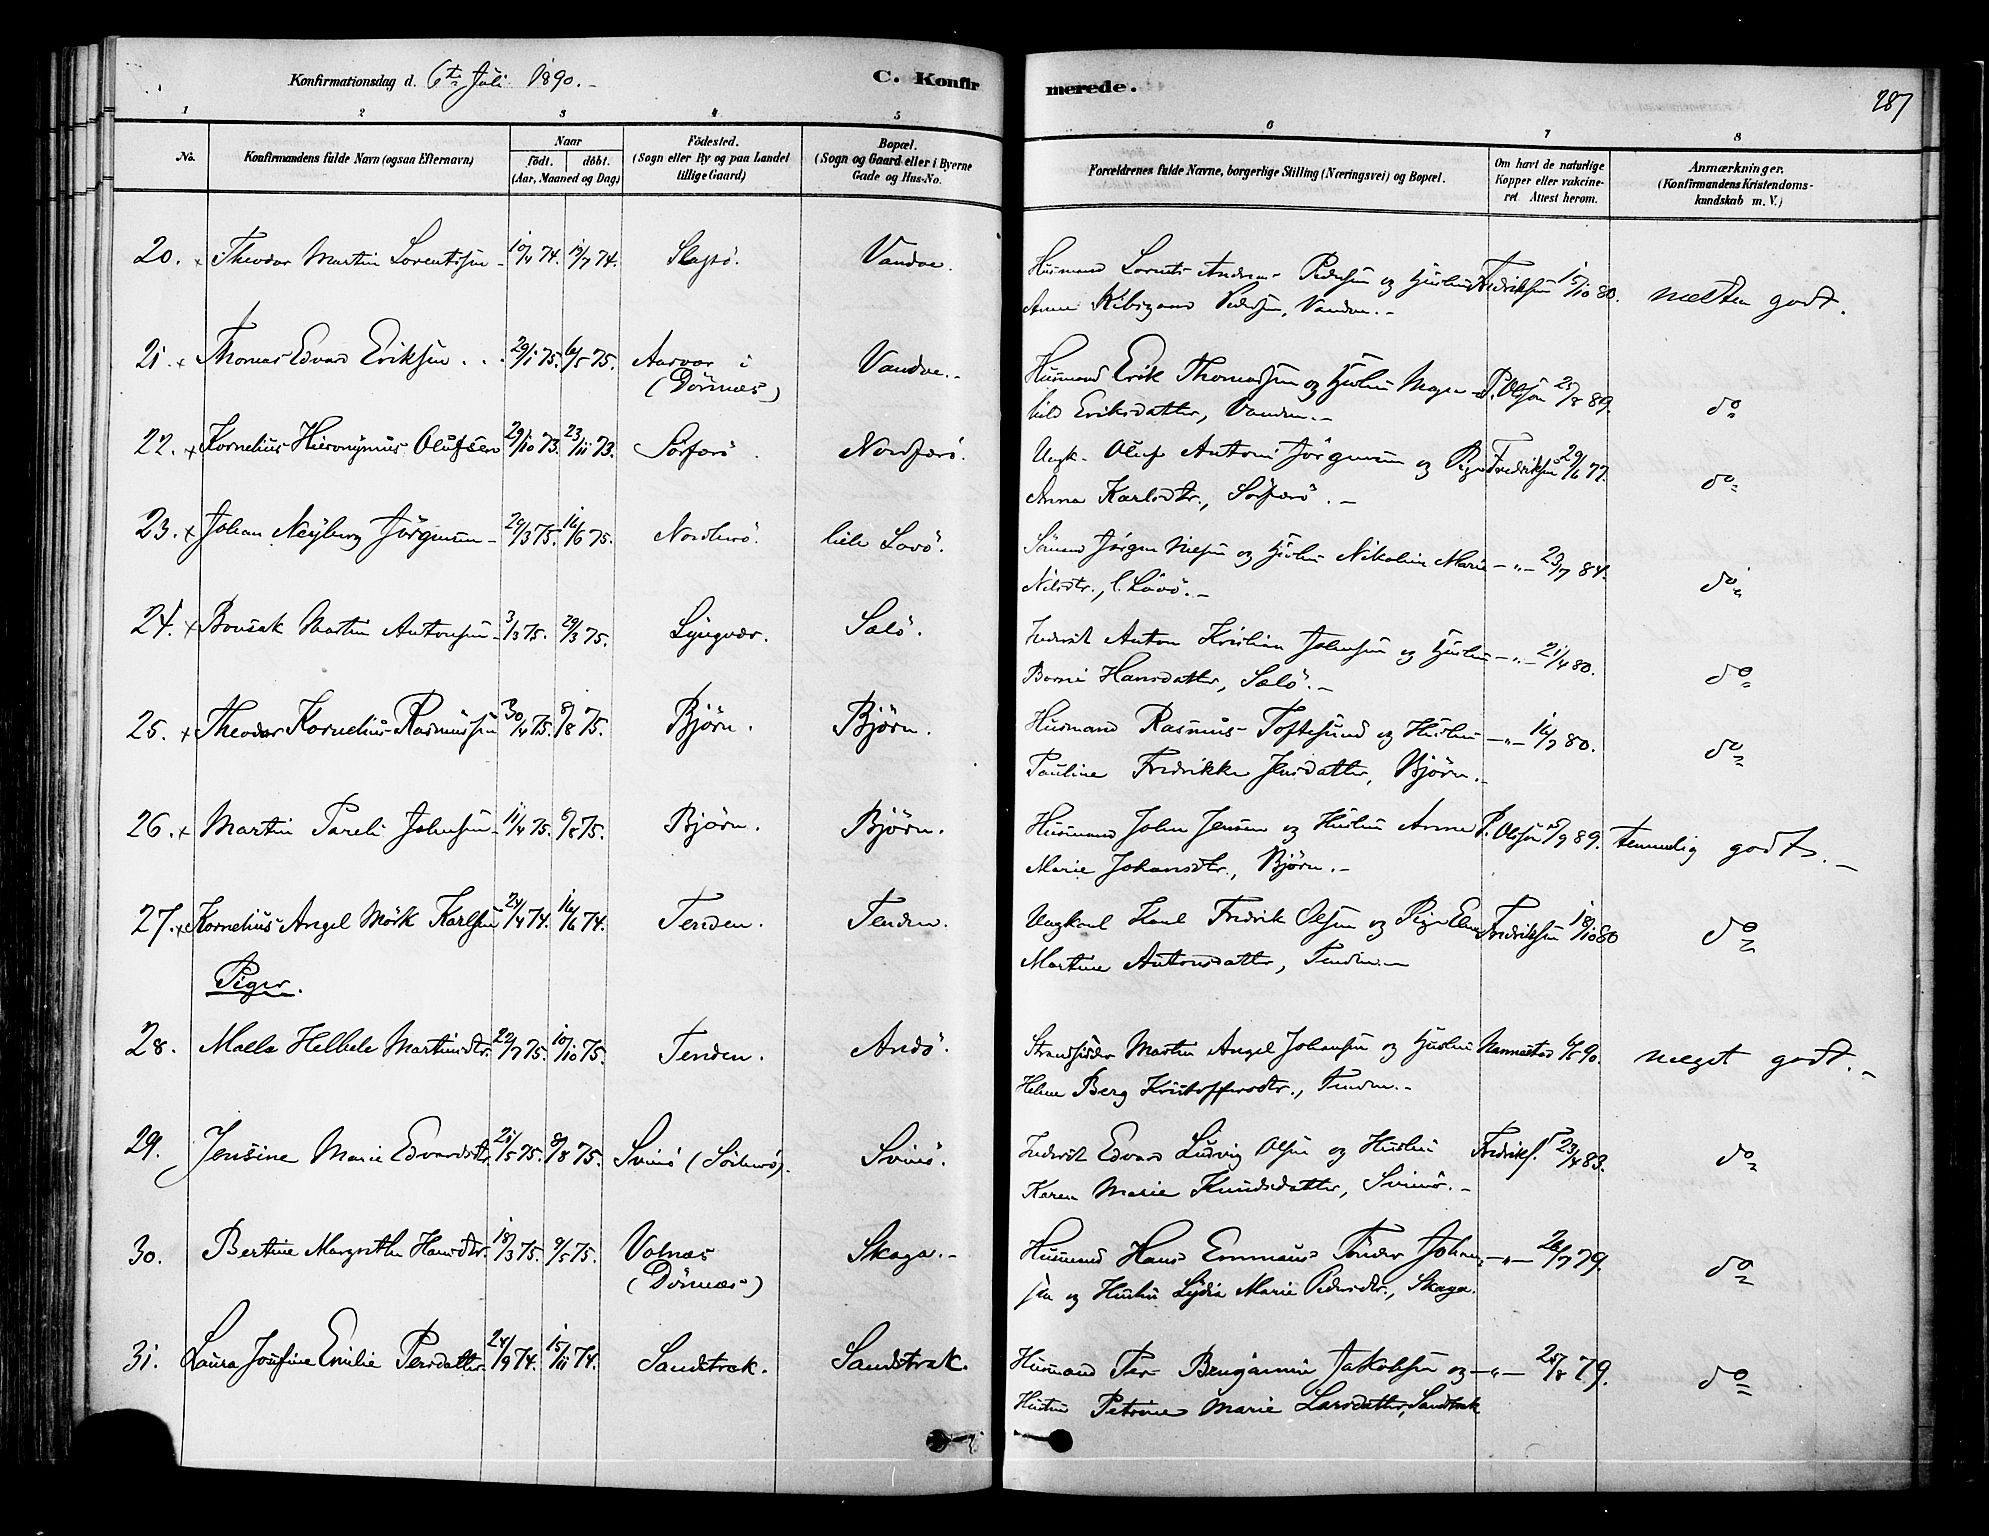 Konfirmationsdag d. 6te Juli 1890.-
C. Konfir
merede.
287
1 2 3 4 5 6 7 8
No.
Konfirmandens fulde Navn (ogsaa Efternavn)
Naar
födt. döbt.
(Aar, Maaned og Dag)
Födested.
(Sogn eller By og paa Landet
tillige Gaard)
Bopæl.
(Sogn og Gaard eller i Byerne
Gade og Hus-No.
Forældrenes fulde Navne, borgerlige Stilling (Næringsvei) og Bopæl.
Om havt de naturlige
Kopper eller vakcine-
ret Attest herom.
Anmærkninger.
(Konfirmandens Kristendoms-
kundskab m. V.)
20. x Theodor Martin Lorentssen 10/4 74. 12/7 74. Slapö. Vandve. Husmand Lorents Andreas Pedersen og Hustru Fredriksen 15/10 80. næsten godt.
Anna Pedersen, Vandve.-
21. x Thomas Edvard Eriksen 29/1 75. 6/5 75. Aasvær i Vandve.- Husmand Erik Thomassen og Hustru Magn- P. Olsen 25/8 89. do
(Dönnæs) hild Eriksdatter, Vandve.-
22. x Kornelius Hieronymus Olufsen 29/10 73. 23/11 73. Sörfærö. Nordfærö. Ungk. Oluf Antoni Jörgensen og Pige Fredriksen 29/6 77. do
Anna Karlsdtr., Sörfærö.-
23. x Johan Neyberg Jörgensen 29/3 75. 16/6 75. Nordherö. lille Lovö. Sömand Jörgen Nilsen og Hustru Nikoline Marie -"- 23/7 84. do
Nilsdtr., l. Lovö.-
24. x Martin Antonsen 3/3 75. 29/3 75. Lyngvær. Salö. Inderst Anton Kristian Johnsen og Hustru -"- 21/4 80. do
Hansdatter, Sælö.-
25. x Theodor Kornelius Rasmussen 30/4 75. 8/8 75. Björn. Björn. Husmand Rasmus Toftesund og Hustru -"- 16/7 80. do
Pauline Fredrikke Jensdatter, Björn.-
26. x Martin Pareli Johnsen 11/4 75. 8/8 75. Björn. Björn. Husmand John Jensen og Hustru Anne P. Olsen /9 89. temmelig godt.-
Marie Johansdtr., Björn.-
27. x Kornelius Angel Mörk Karlsen 24/4 74. 16/6 74. Tenden. Tenden. Ungkarl Karl Fredrik Olsen og Pige Fredriksen 18/10 80 do
Martine Antonsdatter, Tenden.-
Piger.
28. Martinsdtr. 22/7 75. 10/10 75. Tenden. Andö. Strandsidder Martin Angel Johansen og Hustru Nannestad 6/5 90. meget godt.-
Helene Berg Kristoffersdtr., Tenden.-
29. Jensine Marie Edvardsdtr. 21/5 75. 8/8 75. Svinö (Sörherö). Svinö. Inderst Edvard Ludvig Olsen og Hustru Fredriks. 23/4 83. do
Karen Marie Knudsdatter, Svinö.-
30. Bertine Margrethe Hansdtr. 18/3 75. 9/5 75. Valnæs Skaga.- Husmand Hans Emmaus Tönder Johan- -"- 26/7 79. do
(Dönnæs) sen og Hustru Lydia Marie Pedersdtr., Skaga.
31. Laura Josefine Emilie Persdatter 24/9 74. 15/11 74. Sandstrak. Sandstrak. Husmand Per Benjamin Jakobsen og -"- 25/8 79. do
Hustru Petrine Marie Larsdatter, Sandstrak